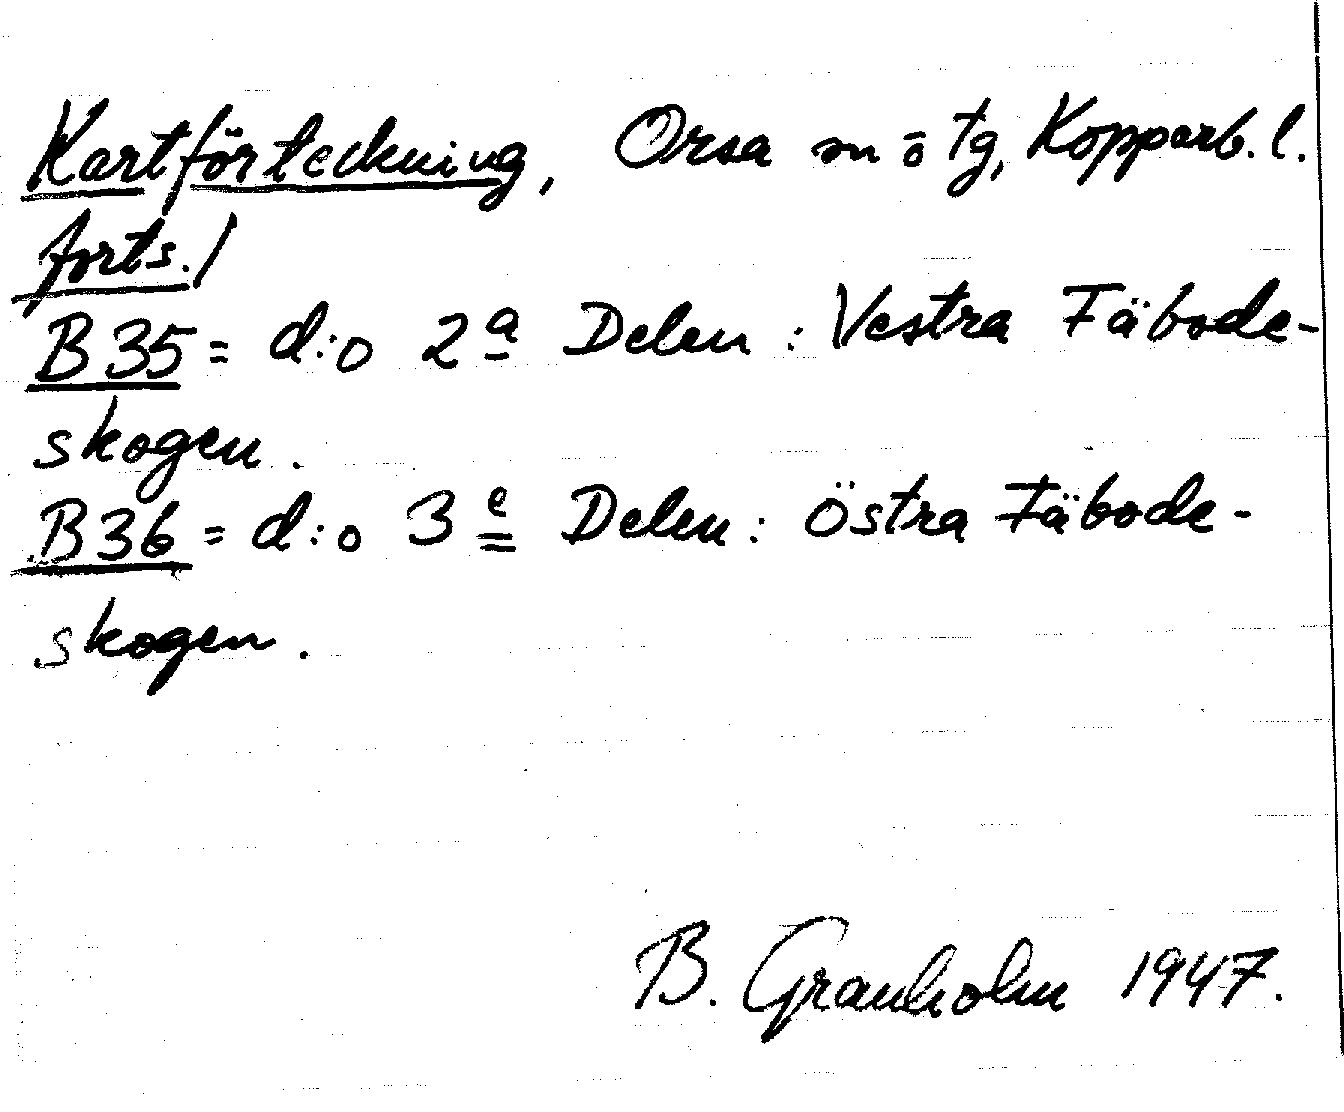 Kartförteckning, Orsa m ö tg, Kopparb. l.
forts./
B35 = d:o 2a Delen : Vestra Fäbode-
skogen.
B36 = d:o 3e Delen : Östra Fäbode-
skogen.
B. Granholm 1947.